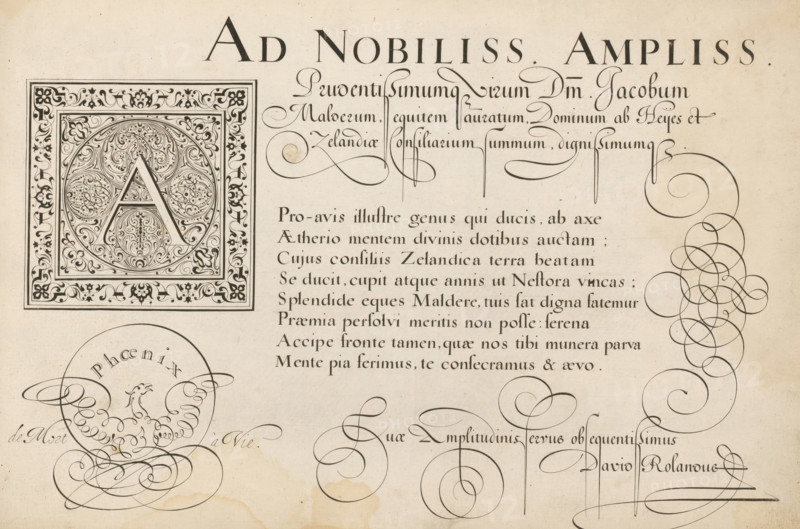 AD NOBILISS. AMPLISS.
Prudentissimumq Virum Dm̄. Jacobum
Malderum, equitem auratum, Dominum ab Heyes et
Zelandiæ Consiliarium summum, dignissimumq.
A
Pro-avis illuſtre genus qui ducis, ab axe
Ætherio mentem divinis dotibus auctam;
Cujus conſiliis Zelandica terra beatam
Se ducit, cupit atque annis ut Neſtora vincas;
Splendide eques Maldere, tuis ſat digna fatemur
Præmia perſolvi meritis non poſſe: ſerena
Accipe fronte tamen, quæ nos tibi munera parva
Mente pia ferimus, te conſecramus & ævo.
Phœnix
de Mort à Vie.
Suæ Amplitudinis servus obsequentissimus
David Rolandus